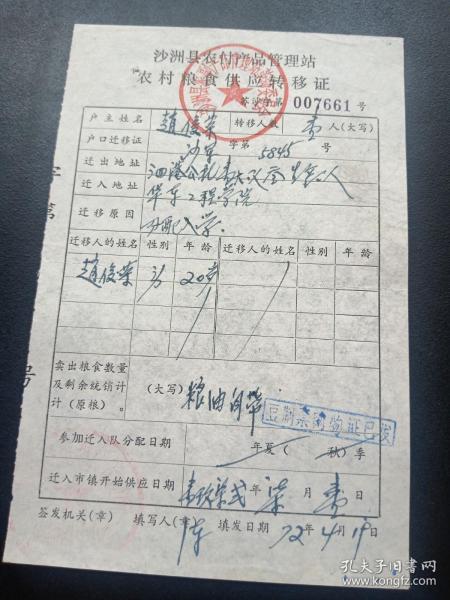 沙洲县农付产品管理站
农村粮食供应转移证
苏沙字第 007661 号
户主姓名 赵俊荣 转移人数 壹 人(大写)
户口迁移证 沙革 字第 5845 号
迁出地址 泗港公社
迁入地址 华东工程学院
迁移原因 分配入学
迁移人的姓名 性别 年龄 迁移人的姓名 性别 年龄
赵俊荣 20岁
卖出粮食数量
及剩余统销计
计(原粮)。
(大写) 粮油自带
豆制品购物证已发
参加迁入队分配日期 年夏(秋)季
迁入市镇开始供应日期 年 月 壹 日
签发机关(章) 填写人(章) 填发日期 72年4月19日
孔夫子旧书网
kongfz.com